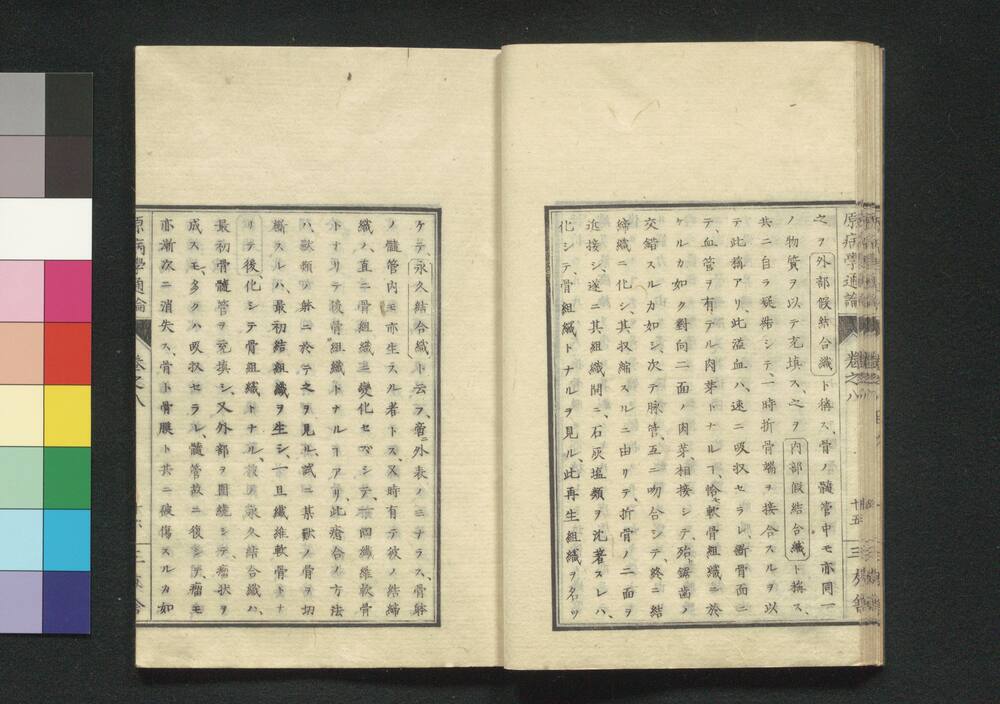 之ヲ外部假結合織ト稱ス、骨ノ髓管中モ亦同一
ノ物質ヲ以テ充填ス、之ヲ内部假結合織ト稱ス、
共ニ自ラ凝締シテ、一時折骨端ヲ接合スルヲ以
テ此稱アリ、此溢血ハ、速ニ吸収セラレ、斷骨面ニ
テ、血管ヲ有テル肉芽トナルヿ、恰モ軟骨組織ニ於
ケルカ如ク對向二面ノ肉芽、相接シテ、殆ト鋸齒ノ
交錯スルカ如シ、次テ脉管、互ニ吻合シテ、終ニ結
締織ニ化シ、其収縮スルニ由リテ、折骨ノ二面ヲ
近接シ、遂ニ其組織間ニ、石灰塩類ヲ沈著スレハ、
化シテ、骨組織トナルヲ見ル、此再生組織ヲ名ツ
原病學通論
卷之八
十五
三
ケテ、永久結合織ト云フ、啻ニ外表ノミナラス、骨幹
ノ髓管内モ亦生スル者トス、又時有テ彼ノ結締
織ノ、直ニ骨組織ニ變化セズシテ、一回纖維軟骨
トナリテ後骨組織トナルヿアリ、此癒合ノ方法
ハ、獸類ノ躰ニ於テ之ヲ見ル、試ニ某獸ノ骨ヲ切
斷スルハ、最初結組織ヲ生シ、一旦纖維軟骨トナ
リテ後、化シテ骨組織トナル、永久結合織ハ、
最初骨髓管ヲ充填シ、又外部ヲ圍繞シテ、瘤状ヲ
成スモ、多クハ吸収セラレ、髓管故ニ復シ、瘤モ
亦漸次ニ消失ス、骨ト骨膜ト共ニ破傷スルカ如
原病學通論
卷之八